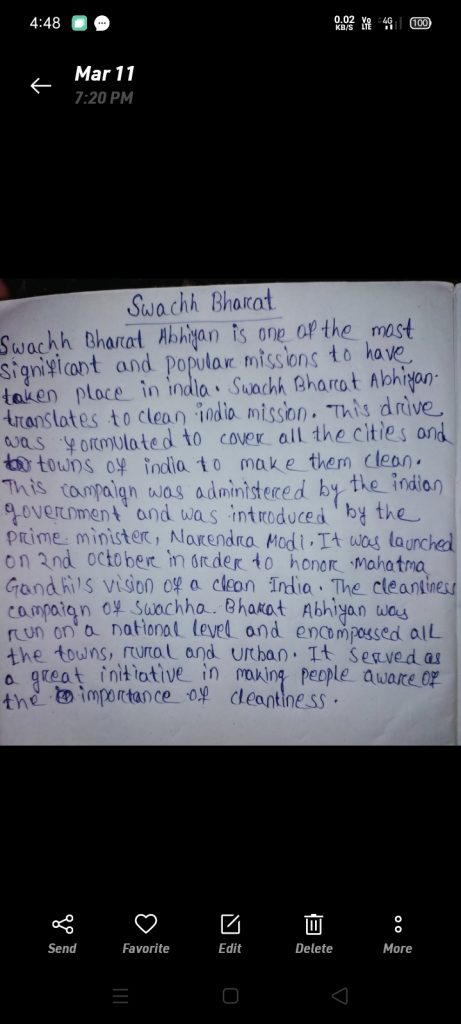 4:48
0.02 KB/S Vo LTE 4G 100
Mar 11
7:20 PM
Swachh Bharat
Swachh Bharat Abhiyan is one of the most
significant and popular missions to have
taken place in india. Swachh Bharat Abhiyan.
translates to clean india mission. This drive
was formulated to cover all the cities and
towns of india to make them clean.
This campaign was administered by the indian
government and was introduced by the
prime minister, Narendra Modi. It was launched
on 2nd october in order to honor mahatma
Gandhi's vision of a clean India. The cleanliness
campaign of Swachha Bharat Abhiyan was
run on a national level and encompassed all
the towns, rural and urban. It served as
a great initiative in making people aware of
the importance of cleanliness.
Send Favorite Edit Delete More